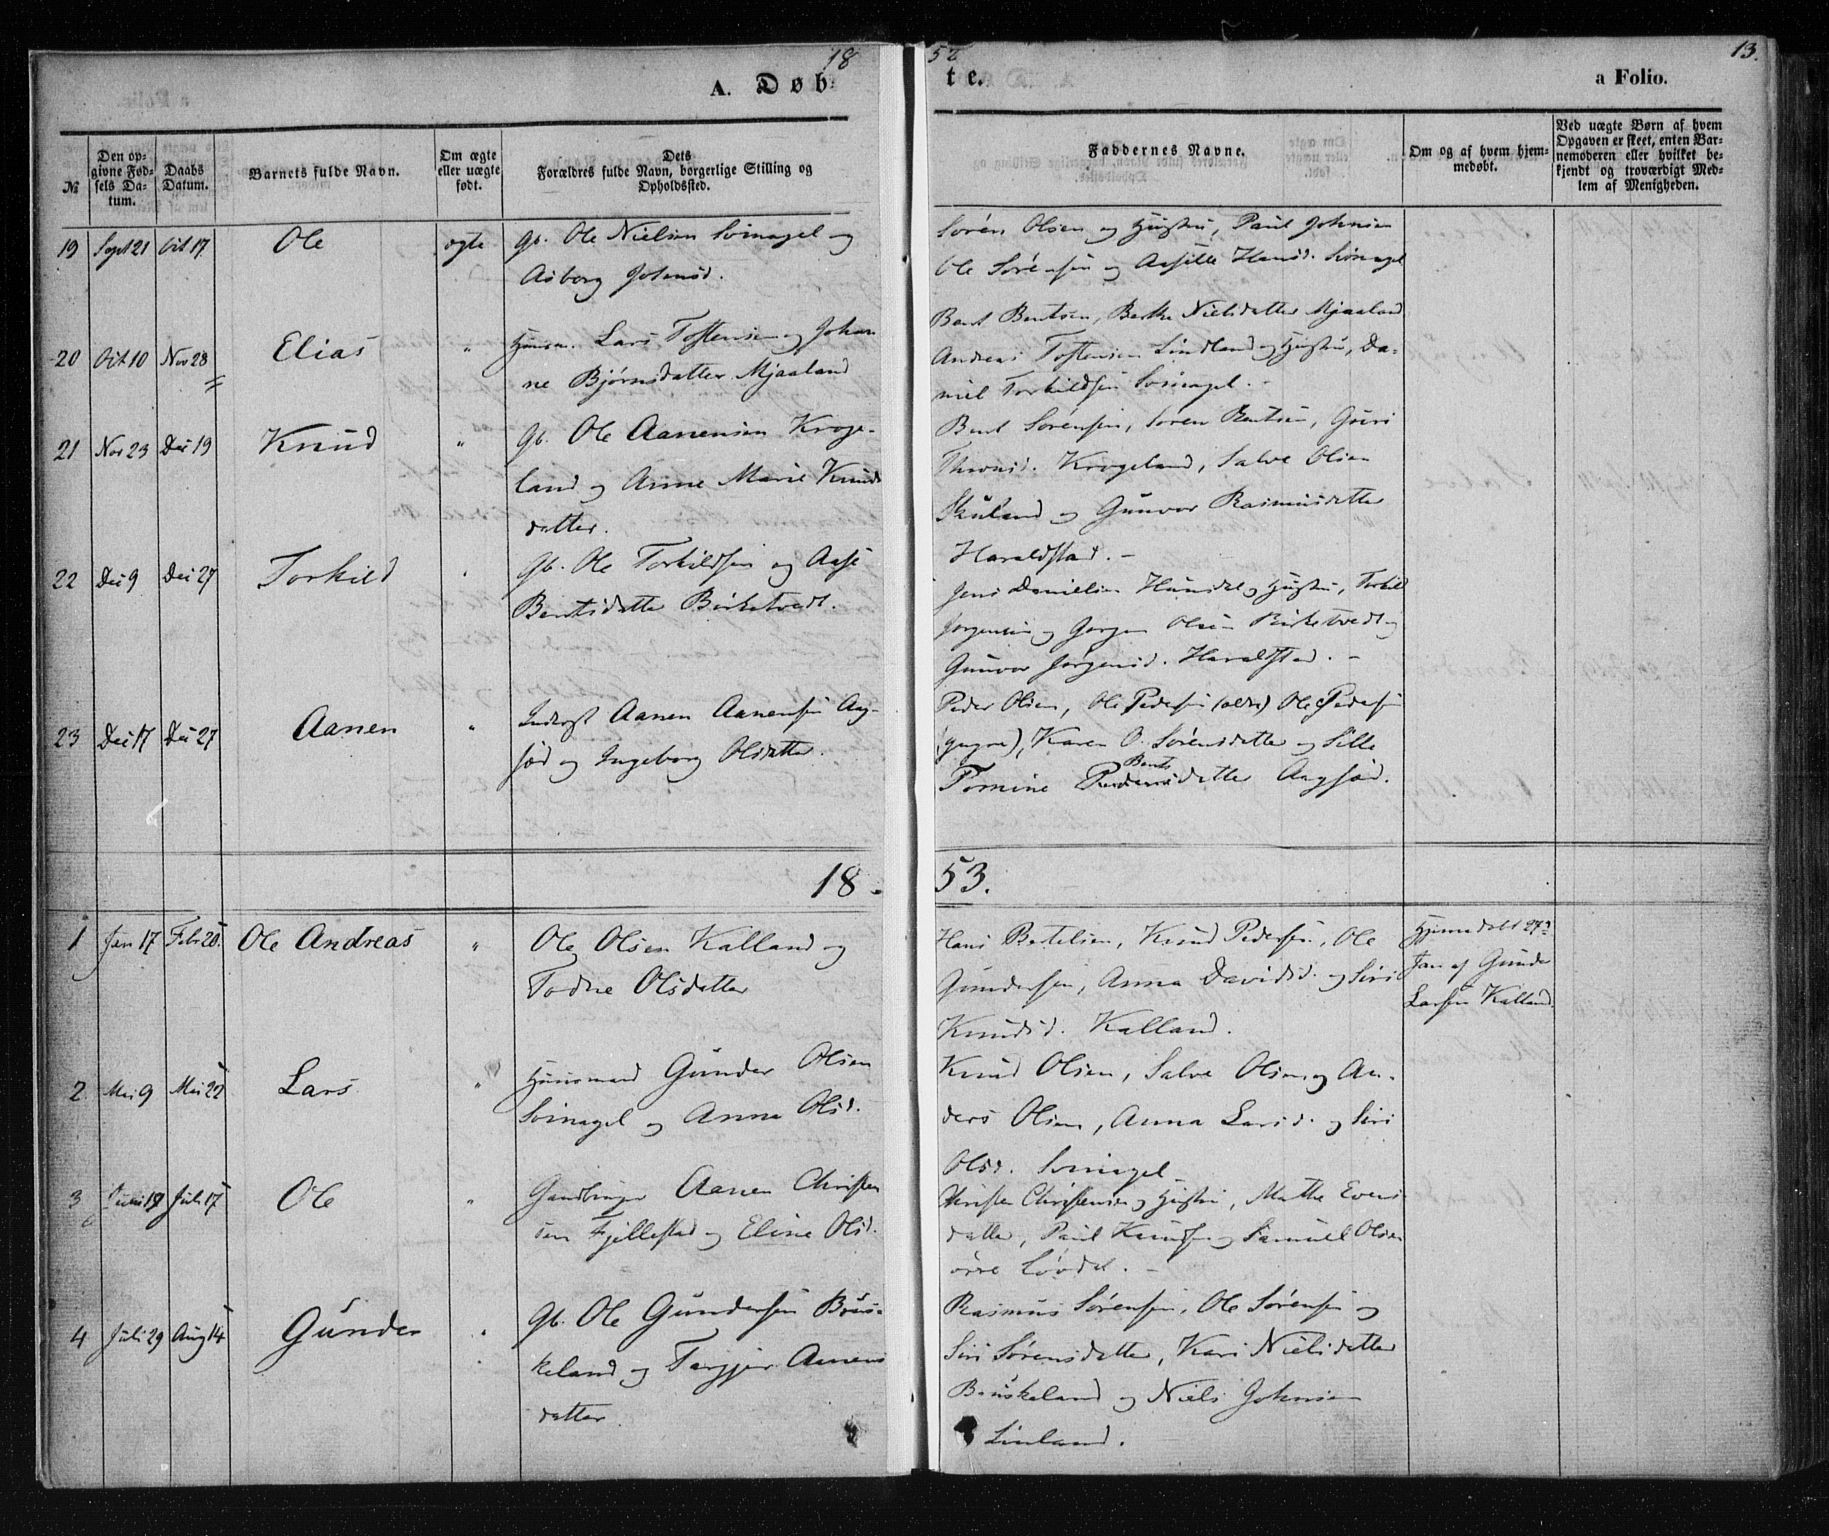 18
A. Døb
52
te.
13.
a Folio.
№
Den opgivne Fødsels Datum.
Daabs Datum.
Barnets fulde Navn.
Om ægte eller uægte født.
Dets Forældres fulde Navn, borgerlige Stilling og Opholdssted.
Faddernes Navne.
Om og af hvem hjemmedøbt.
Ved uægte Børn af hvem Opgaven er skeet, enten Barnemoderen eller hvilket bekjendt og troværdigt Medlem af Menigheden.
19 Sept 21 Oct 17 Ole ægte Gb. Ole Nielsen Svinagel og
Asborg Johnsd.
Søren Olsen og Hustru, Paul Johnsen
Ole Sørensen og Aasille Hansd. Svinagel
20 Oct 10 Nov 28 Elias " Huusm. Lars Tostensen og Johan
ne Bjørnsdatter Mjaaland
Bent Bentsen, Berthe Nielsdatter Mjaaland
Andreas Tostensen Lindland og Hustru, Da-
niel Torkildsen Svinagel. -
21 Nov 23 Dec 19 Knud " Gb. Ole Aanensen Kroge-
land og Anne Marie Knuds
datter.
Bent Sørensen, Søren Bentsen, Guri
Thronsd. Krogeland, Salve Olsen
Skuland og Gunvor Rasmusdatter
Haraldstad. -
22 Dec 9 Dec 27 Torkild " Gb. Ole Torkildsen og Aase
Bentsdatter Birketvedt.
Jens Danielsen Hunsdal og Hustru, Torkild
Jørgensen og Jørgen Olsen Birketvedt og
Gunvor Jørgensd. Haraldstad. -
23 Dec 17 Dec 27 Aanen " Inderst Aanen Aanensen Aag-
sød og Ingeborg Olsdatter.
Peder Olsen, Ole Pedersen (ældre) Ole Pedersen
(yngre), Karen O. Sørensdatter og Sille
Tomine Bents datter Aagsød.
18
53.
1 Jan 17 Febr 20. Ole Andreas " Ole Olsen Kalland og
Todne Olsdatter
Hans Betelsen, Knud Pedersen, Ole
Gundersen, Anna Davidsd. og Siri
Knudsd. Kalland.
Hjemmedøbt 27de
Jan af Gunder
Larsen Kalland
2 Mai 9 Mai 22 Lars " Huusmand Gunder Olsen
Svinagel og Anna Olsd.
Knud Olsen, Salve Olsen og An-
ders Olsen, Anna Larsd. og Siri
Olsd. Svinagel
3 Juni 19 Juli 17 Ole " Gaardbruger Aanen Christen
sen Fjellestad og Eline Olsd.
Christen Christensen og Hustru, Marthe Evens
datter, Paul Knudsen og Samuel Olsen
øvre Løvdal. -
4 Juli 29 Aug 14 Gunder " Gb. Ole Gundersen Brus-
keland og Targjer Aanens
datter.
Rasmus Sørensen, Ole Sørensen og
Siri Sørensdatter, Kari Nielsdatter
Bruskeland og Niels Johnsen
Linland.